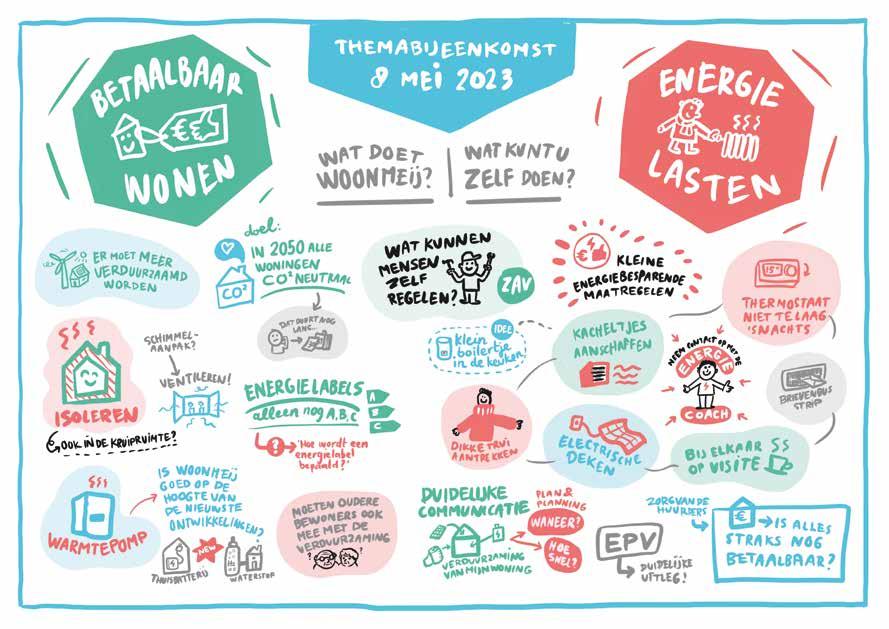 THEMABIJEENKOMST
8 MEI 2023
BETAALBAAR
€
WONEN
ENERGIE
LASTEN
WAT DOET
WOONMEIJ?
WAT KUNT U
ZELF DOEN?
ER MOET MEER
VERDUURZAAMD
WORDEN
doel:
IN 2050 ALLE
WONINGEN
CO² NEUTRAAL
CO²
DAT DUURT NOG
LANG...
WAT KUNNEN
MENSEN
ZELF
REGELEN?
ZAV
€
KLEINE
ENERGIEBESPARENDE
MAATREGELEN
15°
THERMOSTAAT
NIET TE LAAG
'S NACHTS
ISOLEREN
OOK IN DE KRUIPRUIMTE?
SCHIMMEL-
AANPAK?
VENTILEREN!
ENERGIELABELS
alleen nog A, B, C
A
B
C
?
'Hoe wordt een
energielabel
bepaald?'
IDEE
klein
boilertje
in de keuken!
KACHELTJES
AANSCHAFFEN
NEEM CONTACT OP MET DE
ENERGIE
COACH
BRIEVENBUS
STRIP
DIKKE TRUI
AANTREKKEN
ELECTRISCHE
DEKEN
BIJ ELKAAR
OP VISITE
WARMTEPOMP
IS WOONMEIJ
GOED OP DE
HOOGTE VAN
DE NIEUWSTE
ONTWIKKELINGEN?
NEW
THUISBATTERIJ
WATERSTOF
MOETEN OUDERE
BEWONERS OOK
MEE MET DE
VERDUURZAMING
?
?
DUIDELIJKE
COMMUNICATIE
PLAN &
PLANNING
WANEER?
HOE
SNEL?
VERDUURZAMING
VAN MIJN WONING
EPV
DUIDELIJKE
UITLEG!
ZORG VAN DE
HUURDERS
€
IS ALLES
STRAKS NOG
BETAALBAAR?